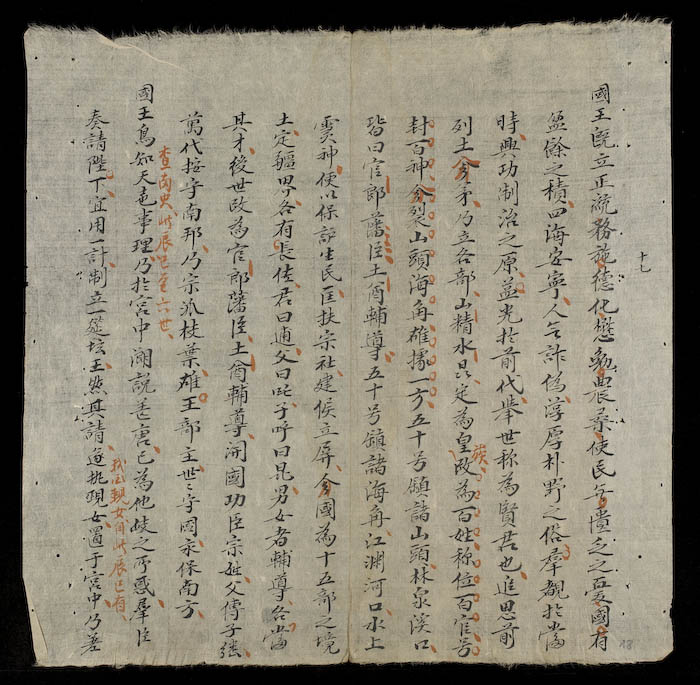 十七
國王既立正統務施德化懋勸農桑使民無匱乏之憂國有
盈餘之積四海安寧人無詐偽淳厚朴野之俗羣覩於當
時興功制治之原益光於前代舉世称為賢君也追思前
列土分茅乃立各部山精水旵定為皇改為百姓称位百官号
族
封百神分裂山頭海角雄據一方五十号領諸山頭林泉溪口
皆曰官郎藩臣土酋輔導五十号領諸海角江渊河口水上
灵神使以保護生民匡扶宗社建候立屏分國為十五部之境
土定疆界各有長佐君曰逋父曰 子呼曰昆男女者輔導各當
其才後世改為官郎藩臣土酋輔導開國功臣宗姓父傳子继
萬代按守南邦乃宗派枝葉雄王部主世〻守國永保南方
查南史此辰已至六世
國王烏知天意事理乃於宮中潮説 唐已為他歧之所惑羣臣
奏請陛下宜用一計制立一筵坛王然其請迯挑現女置于宮中乃差
我 親女 此辰已有
18